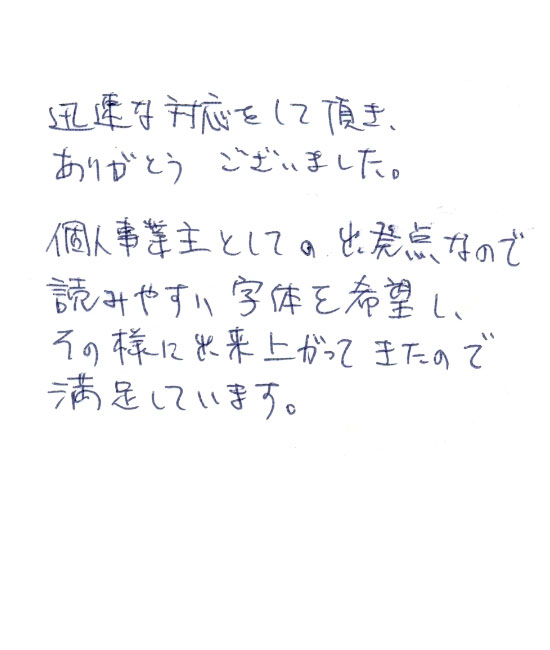 迅速な対応をして頂き、
ありがとう ございました。
個人事業主としての 出発点なので
読みやすい 字体を希望し、
その様に出来上がって きたので
満足しています。